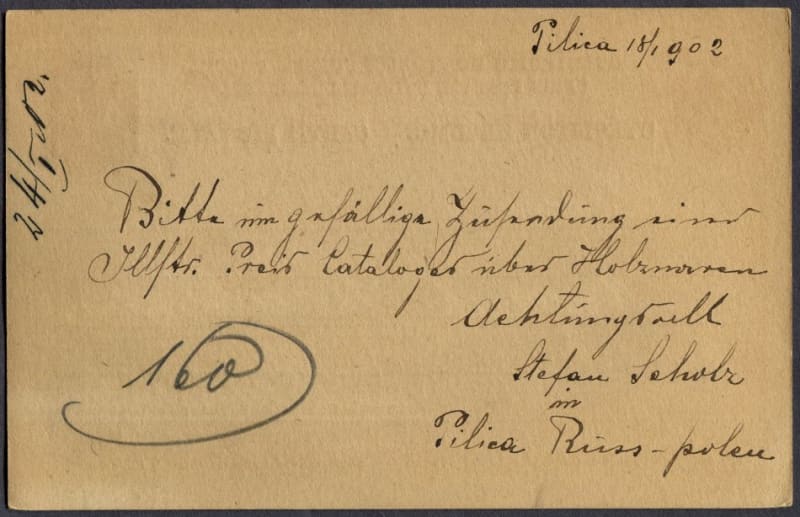 Pilica 18/1 902
24/I 02.
Bitte um gefällige Zusendung eines
Illstr. Preis Cataloges über Holzwaren
Achtungsvoll
Stefan Scholz
in
Pilica Russ-polen
160